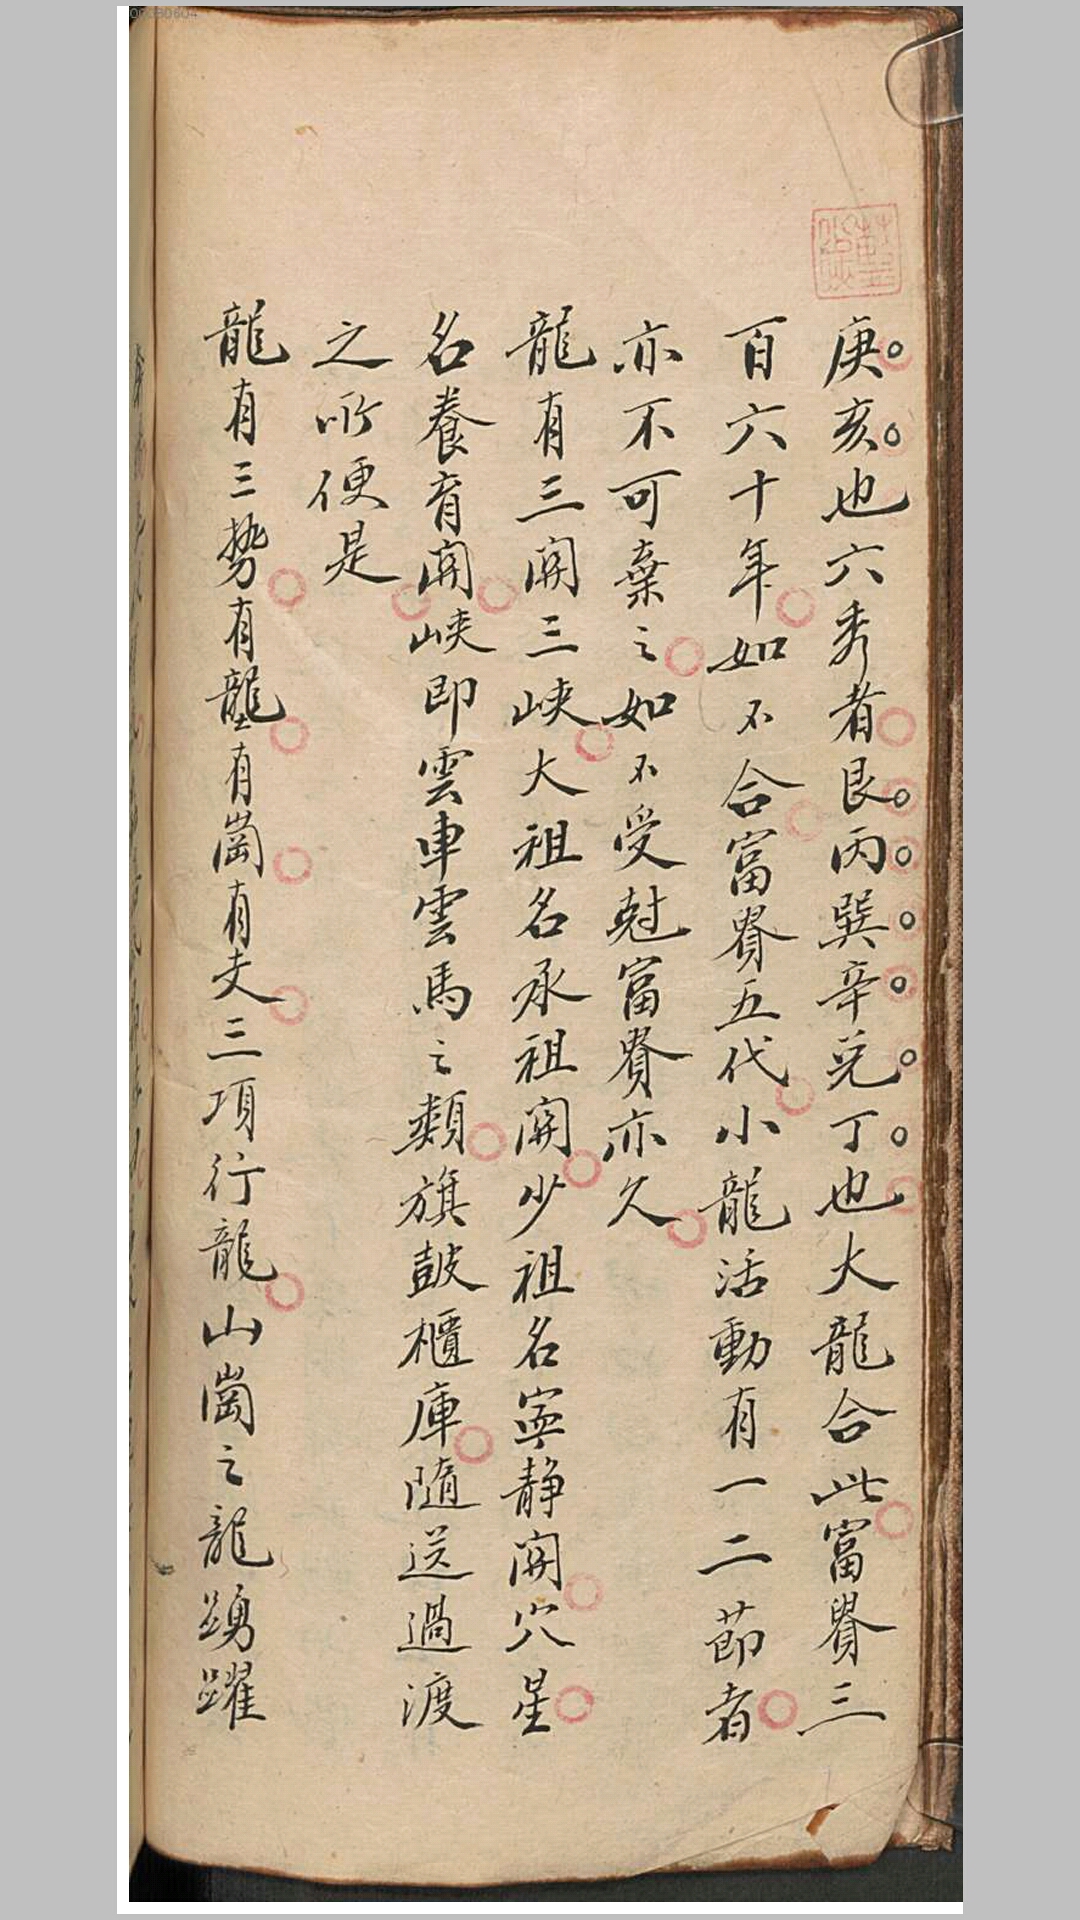 庚亥也六秀者艮丙巽辛兌丁也大龍合此富貴三
百六十年如不合富貴五代小龍活動有一二節者
亦不可棄之如不受尅富貴亦久
龍有三関三峽大祖名承祖関少祖名寧静関穴星
名養育関峽即雲車雲馬之類旗鼓櫃庫隨送過渡
之所便是
龍有三勢有壟有崗有支三項行龍山崗之龍踴躍